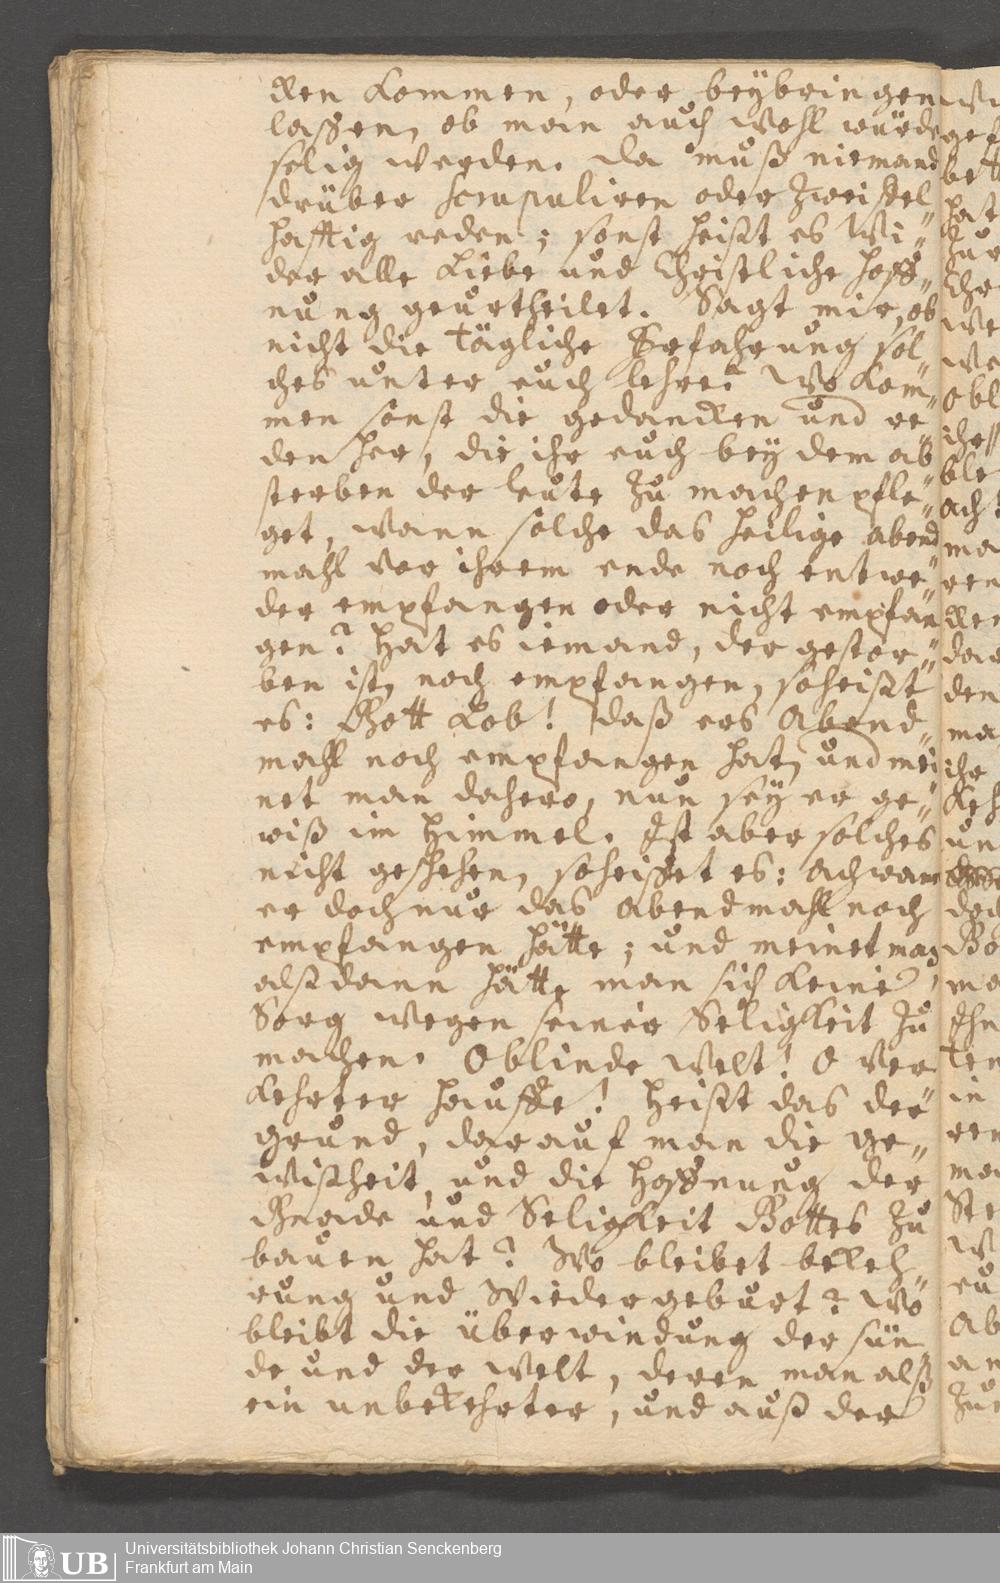 cken kommen, oder beÿbringen
laßen, ob man auch wohl würde
selig werden. Da muß niemand
drüber scrupuliren oder zweiffel„
hafftig reden; sonst heist es wi„
der alle Liebe und Christliche hoff„
nung geurtheilet. Sagt mir, ob
nicht die tägliche Erfahrung sol„
ches unter euch lehre? Wo kom„
men sonst die gedancken und re„
den her, die ihr euch beÿ dem ab„
sterben der leute zu machen pfle„
get, wann solche das heilige abend
mahl vor ihrem ende noch entwe„
der empfangen oder nicht empfan„
gen? Hat es iemand, der gestor„
ben ist, noch empfangen, so heist
es: Gott Lob! daß ers Abend„
mahl noch empfangen hat, und mei„
net man dahero, nun seÿ er ge„
wiß im Himmel. Ist aber solches
nicht geschehen, so heisset es: Ach wann
er doch nur das abendmahl noch
empfangen hätte; und meinet man
alsdann hätte man sich keine
Sorg wegen seiner Seligkeit zu
machen. O blinde Welt! O ver„
kehrter hauffe! Heist das der
grund, darauf man die ge„
wisheit, und die Hoffnung der
Gnade und Seligkeit Gottes zu
bauen hat? Wo bleibet bekeh„
rung und Wiedergeburt? Wo
bleibt die überwindung der sün„
de und der Welt, deren man alß
ein unbekehrter, und auß der
UB
Universitätsbibliothek Johann Christian Senckenberg
Frankfurt am Main